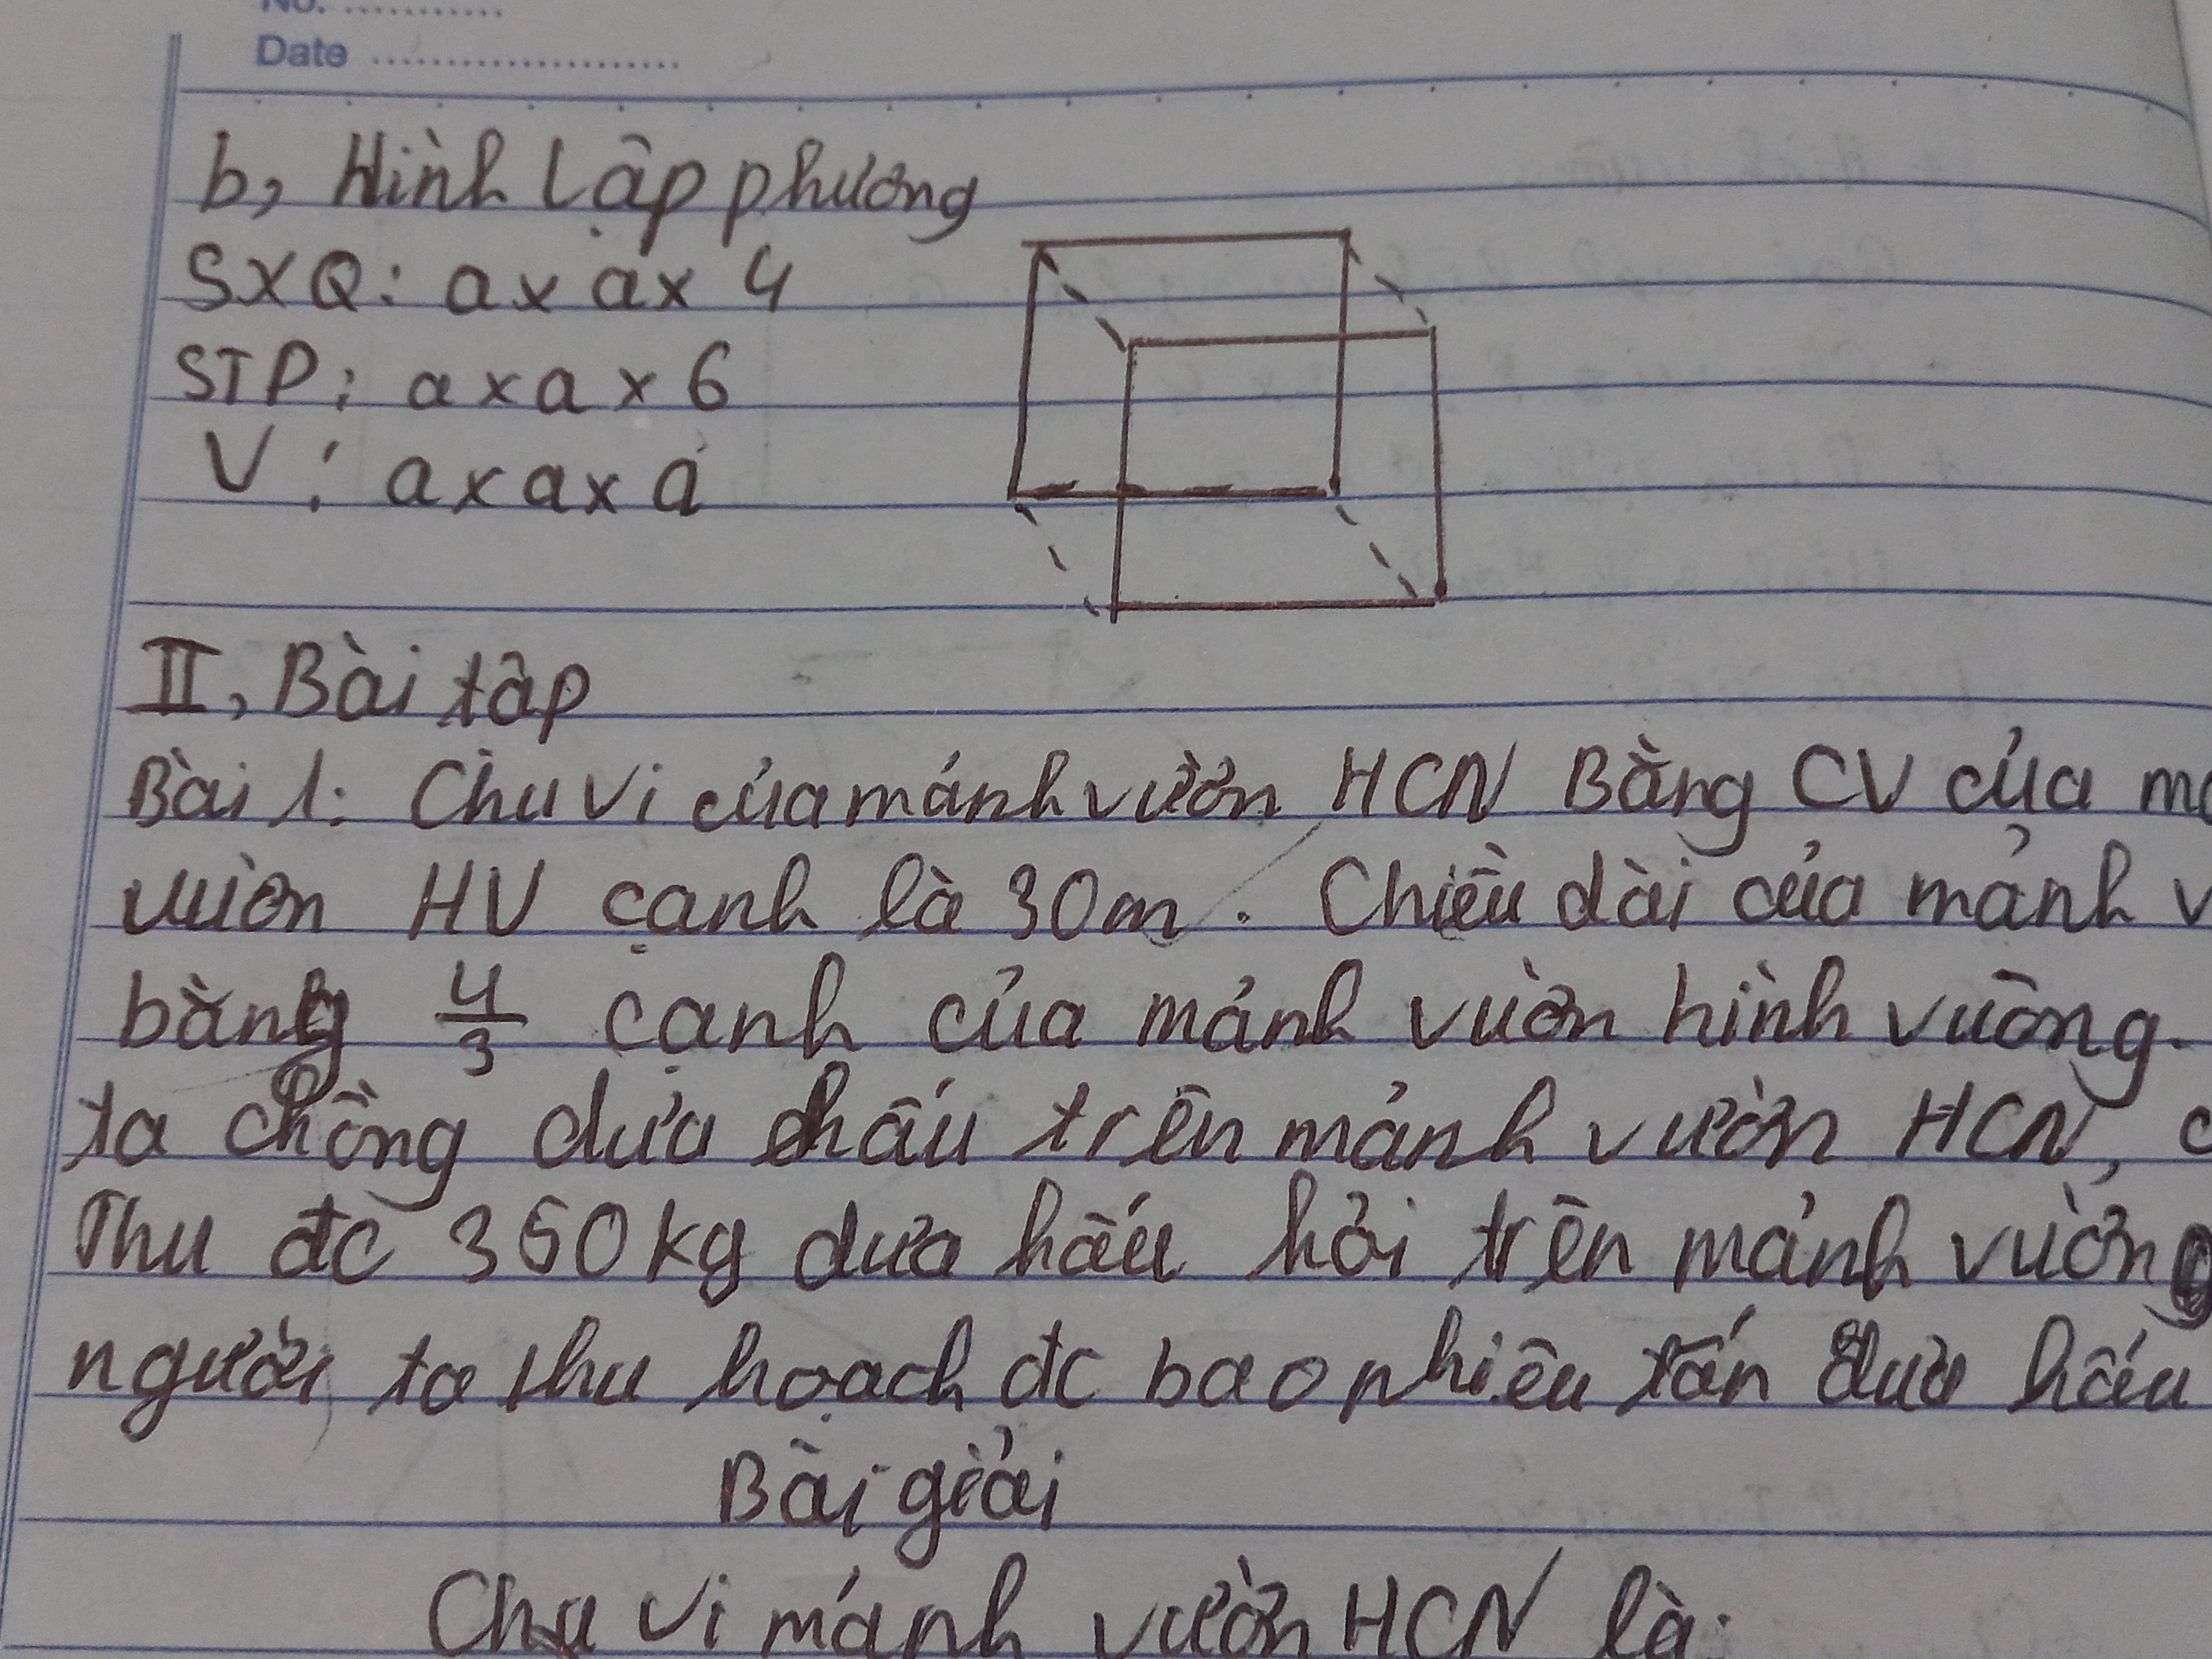 No. ............
Date ......................
b, Hình lập phương
SXQ: a x a x 4
STP: a x a x 6
V: a x a x a
II, Bài tâp
Bài 1: Chu vi của mảnh vườn HCN Bằng CV của
vườn HV cạnh là 30m. Chiều dài của mảnh v
bằng 4/3 cạnh của mảnh vườn hình vuông.
ta chồng dưa hấu trên mảnh vườn HCN,
Thu đc 350kg dưa hấu hỏi trên mảnh vườn
người ta thu hoạch đc bao nhiêu tấn dưa hấu
Bài giải
Chu vi mảnh vườn HCN là: